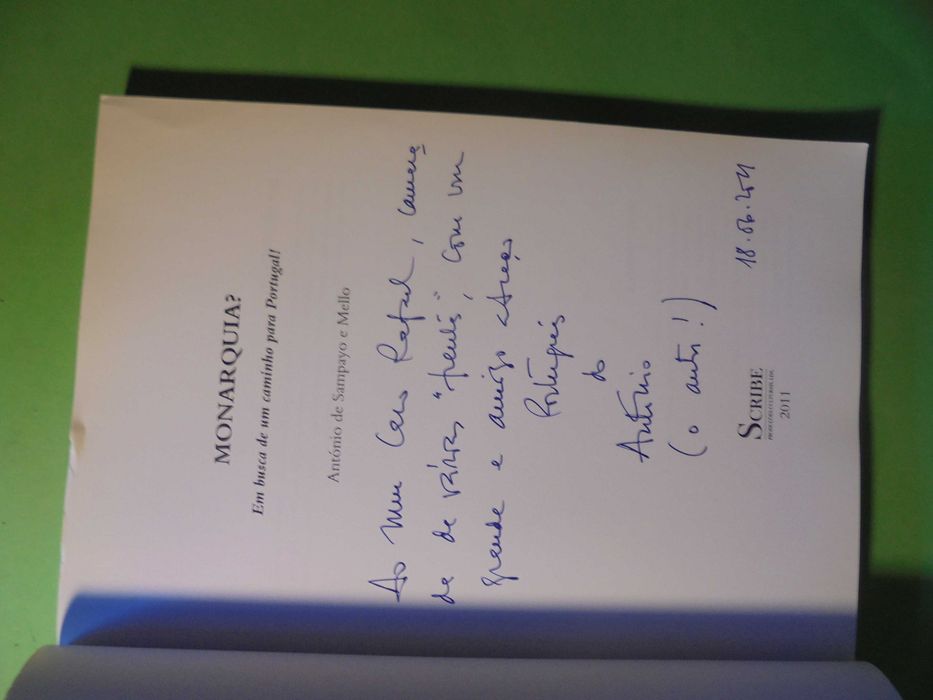 MONARQUIA?
Em busca de um caminho para Portugal!
António de Sampayo e Mello
Ao meu Caro Rafael, camara
da de várias "frentes", com um
grande e amigo abraço
Português
do
António
(o autor!)
18.06.2011
SCRIBE
2011